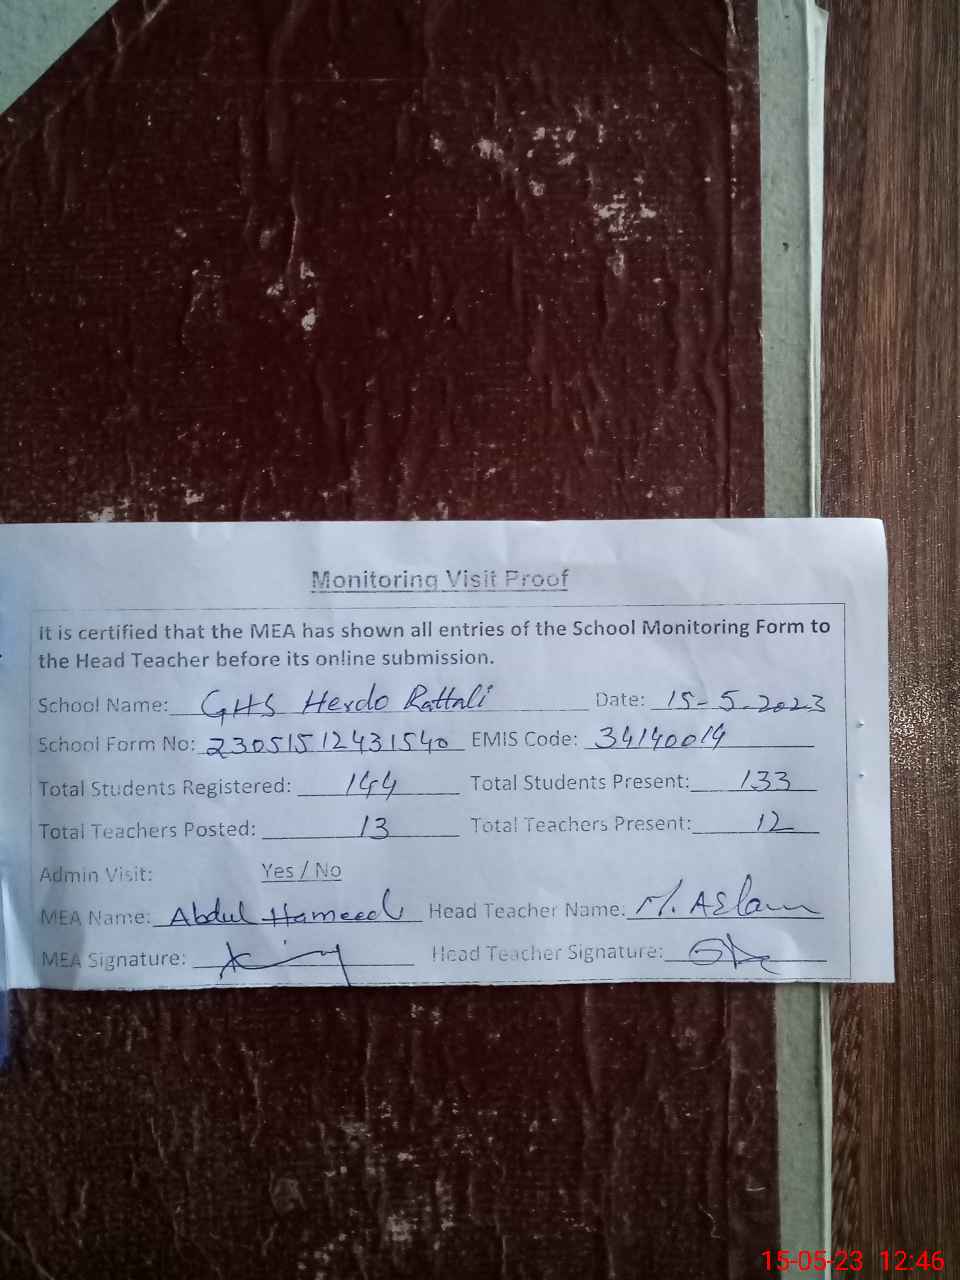 Monitoring Visit Proof
It is certified that the MEA has shown all entries of the School Monitoring Form to
the Head Teacher before its online submission.
School Name: GHS Herdo Rattali Date: 15-5-2023
School Form No: 23051512431540 EMIS Code: 34140014
Total Students Registered: 144 Total Students Present: 133
Total Teachers Posted: 13 Total Teachers Present: 12
Admin Visit: Yes / No
MEA Name: Abdul Hameed Head Teacher Name: M. Aslam
MEA Signature: Head Teacher Signature:
15-05-23 12:46